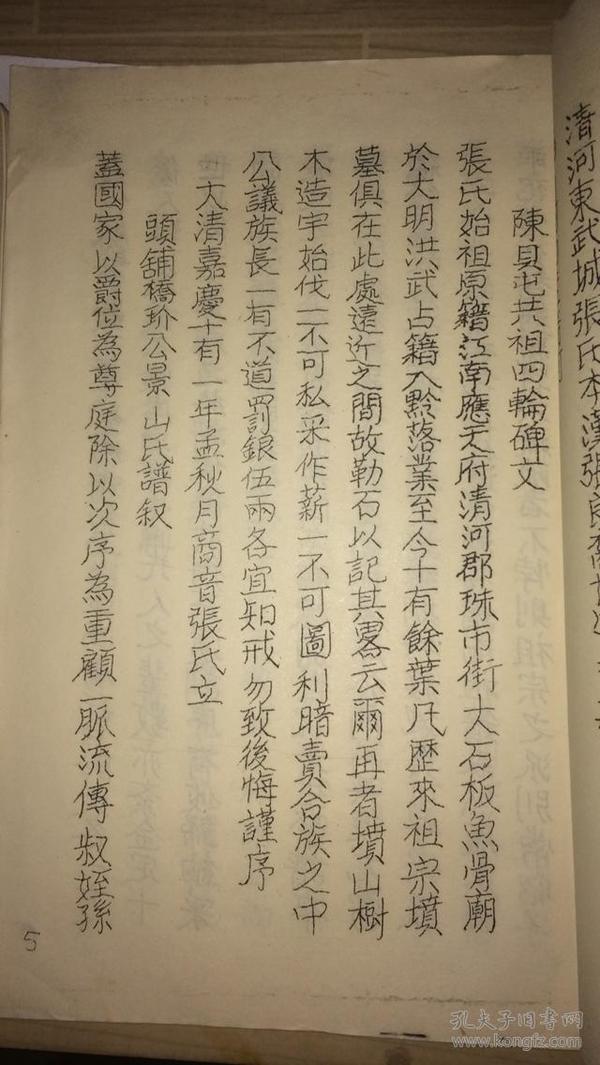 清河東武城張氏本漢張良
陳貝屯共祖四輪碑文
張氏始祖原籍江南應天府清河郡珠市街大石板魚骨廟
於大明洪武占籍入黔落業至今十有餘葉凡歷來祖宗墳
墓俱在此處遠近之間故勒石以記其畧云爾再者墳山樹
木造宇始伐一不可私采作薪一不可圖利暗賣合族之中
公議族長一有不道罰銀伍兩各宜知戒勿致後悔謹序
大清嘉慶十有一年孟秋月商音張氏立
頭舖橋玠公景山氏譜叙
蓋國家以爵位為尊庭除以次序為重顧一脈流傳叔姪孫
5
孔夫子旧书网
www.kongfz.com